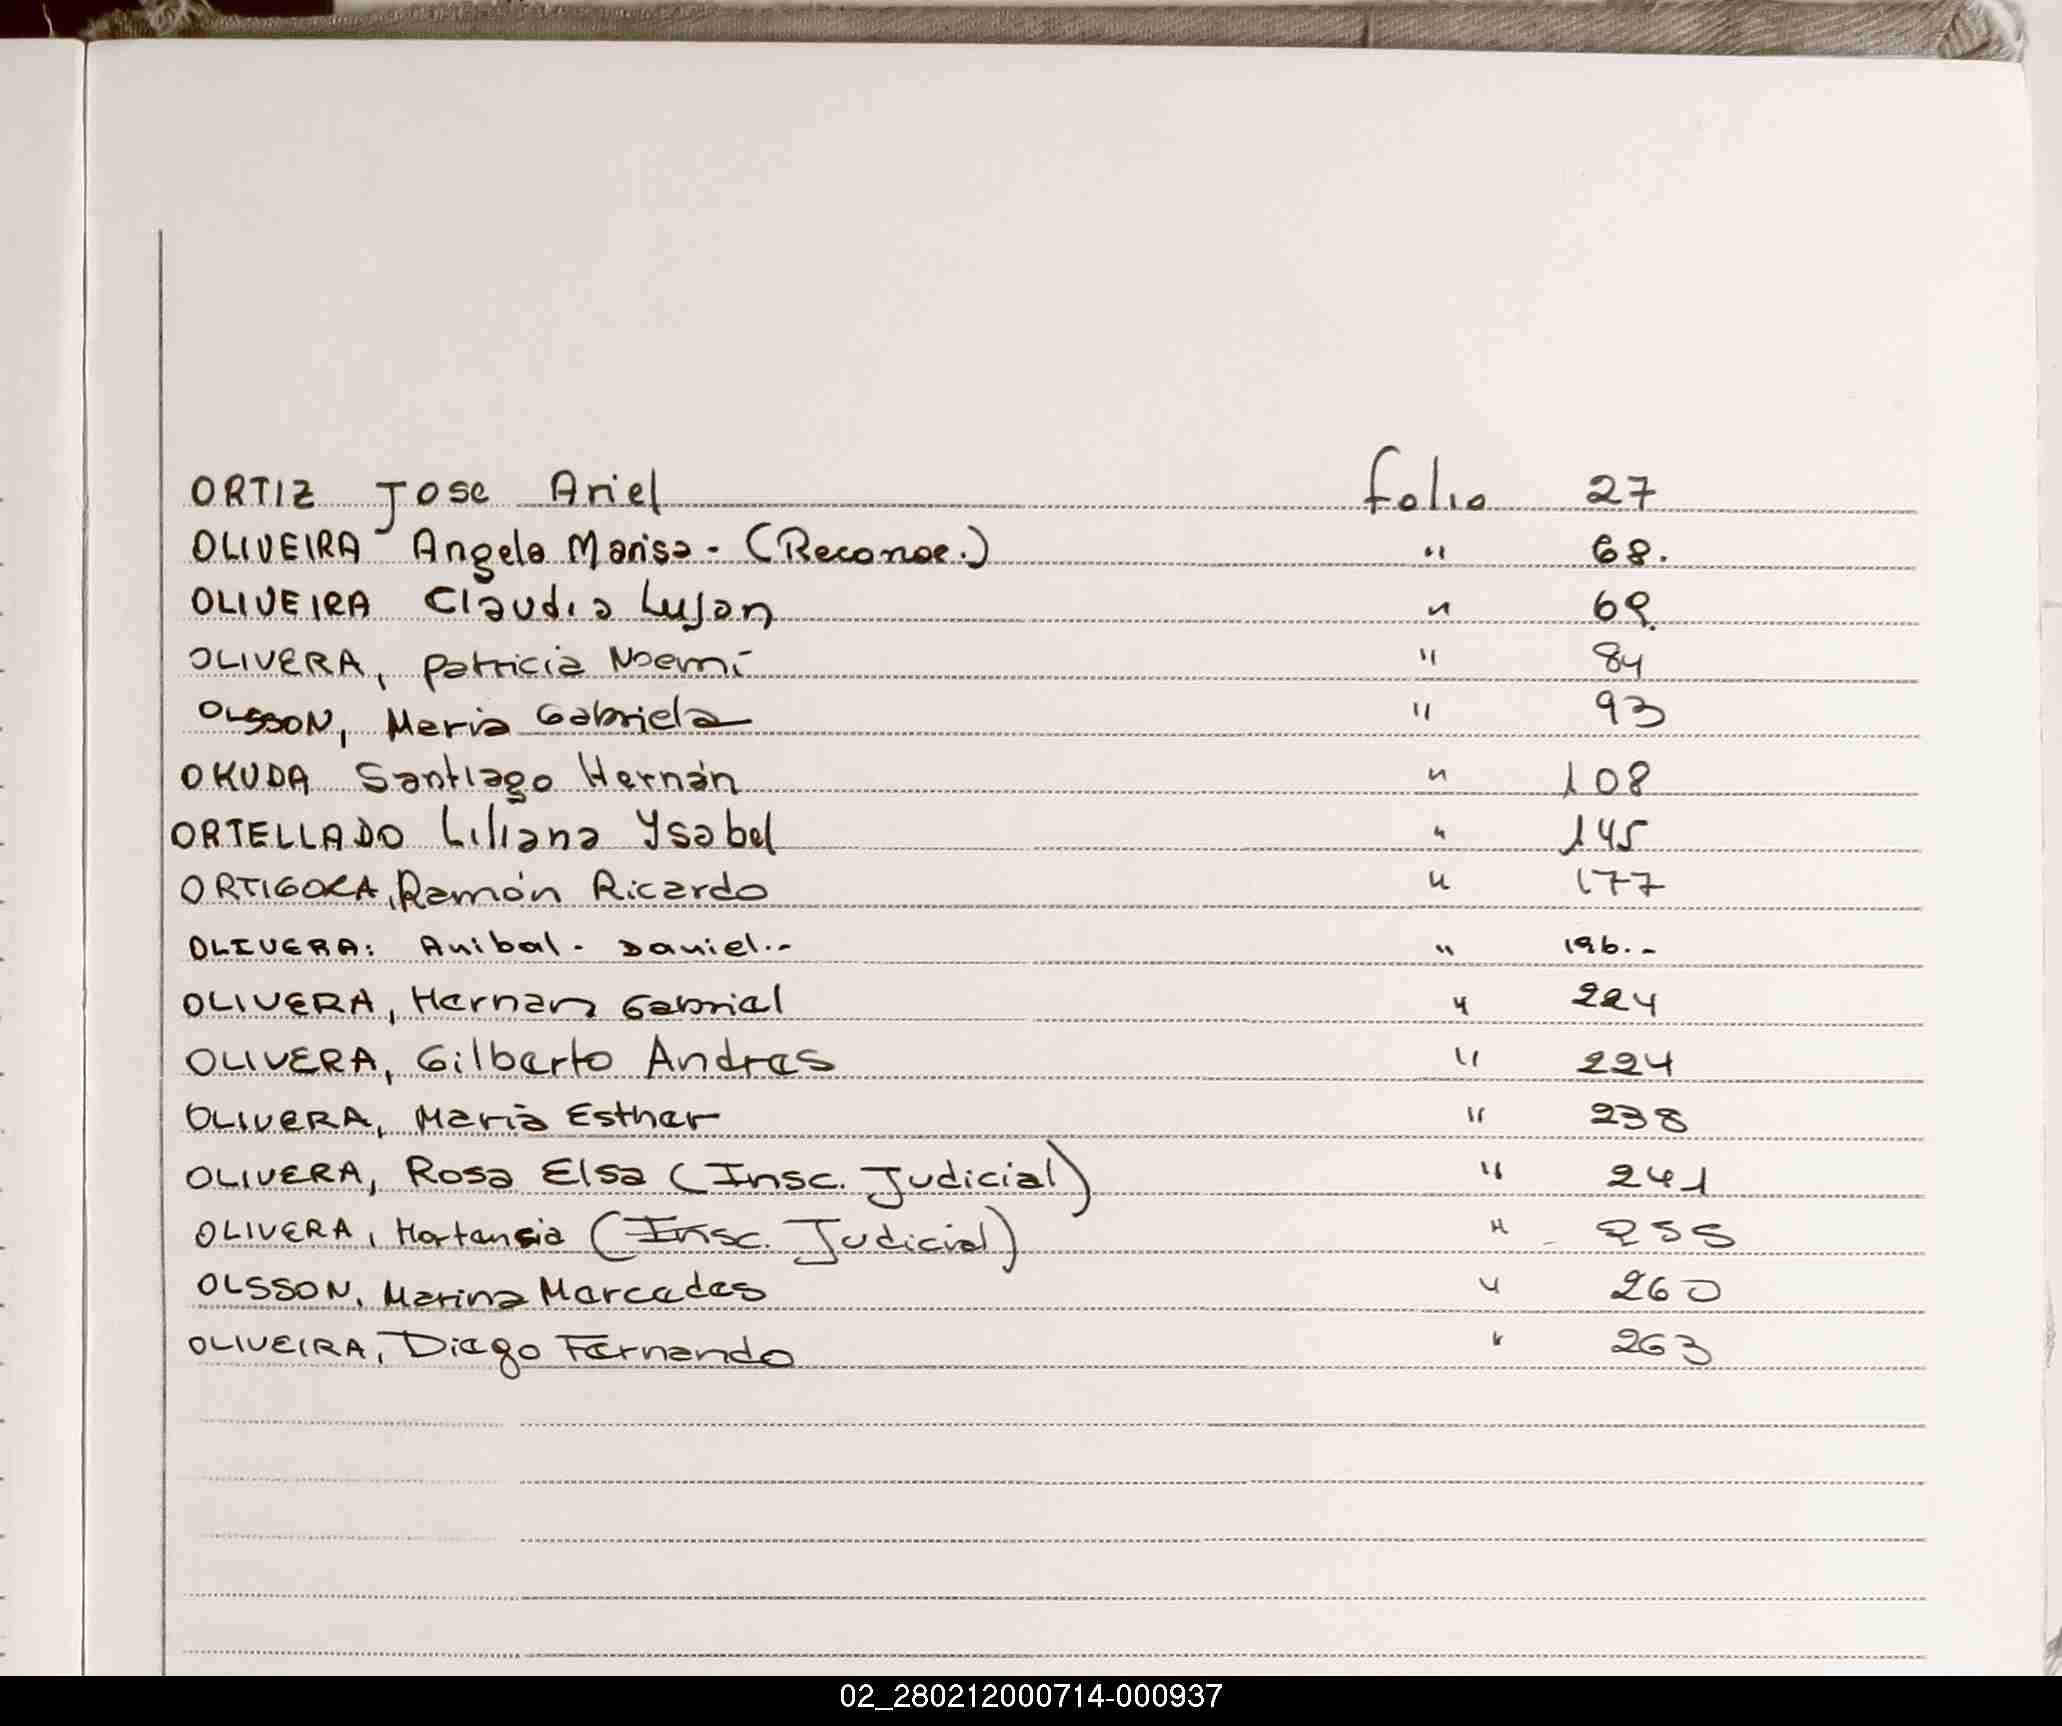 ORTIZ Jose Ariel folio 27
OLIVEIRA Angela Marisa - (Reconoc.) " 68.
OLIVEIRA Claudia Lujan " 69.
OLIVERA, Patricia Noemí " 84
OLSSON, Maria Gabriela " 93
OKUDA Santiago Hernán " 108
ORTELLADO Liliana Ysabel " 145
ORTIGOZA, Ramón Ricardo " 177
OLIVERA: Anibal - Daniel.- " 196.-
OLIVERA, Hernan Gabriel " 224
OLIVERA, Gilberto Andres " 224
OLIVERA, Maria Esther " 238
OLIVERA, Rosa Elsa (Insc. Judicial) " 241
OLIVERA, Hortensia (Insc. Judicial) " 255
OLSSON, Marina Mercedes " 260
OLIVEIRA, Diego Fernando " 263
02_280212000714-000937